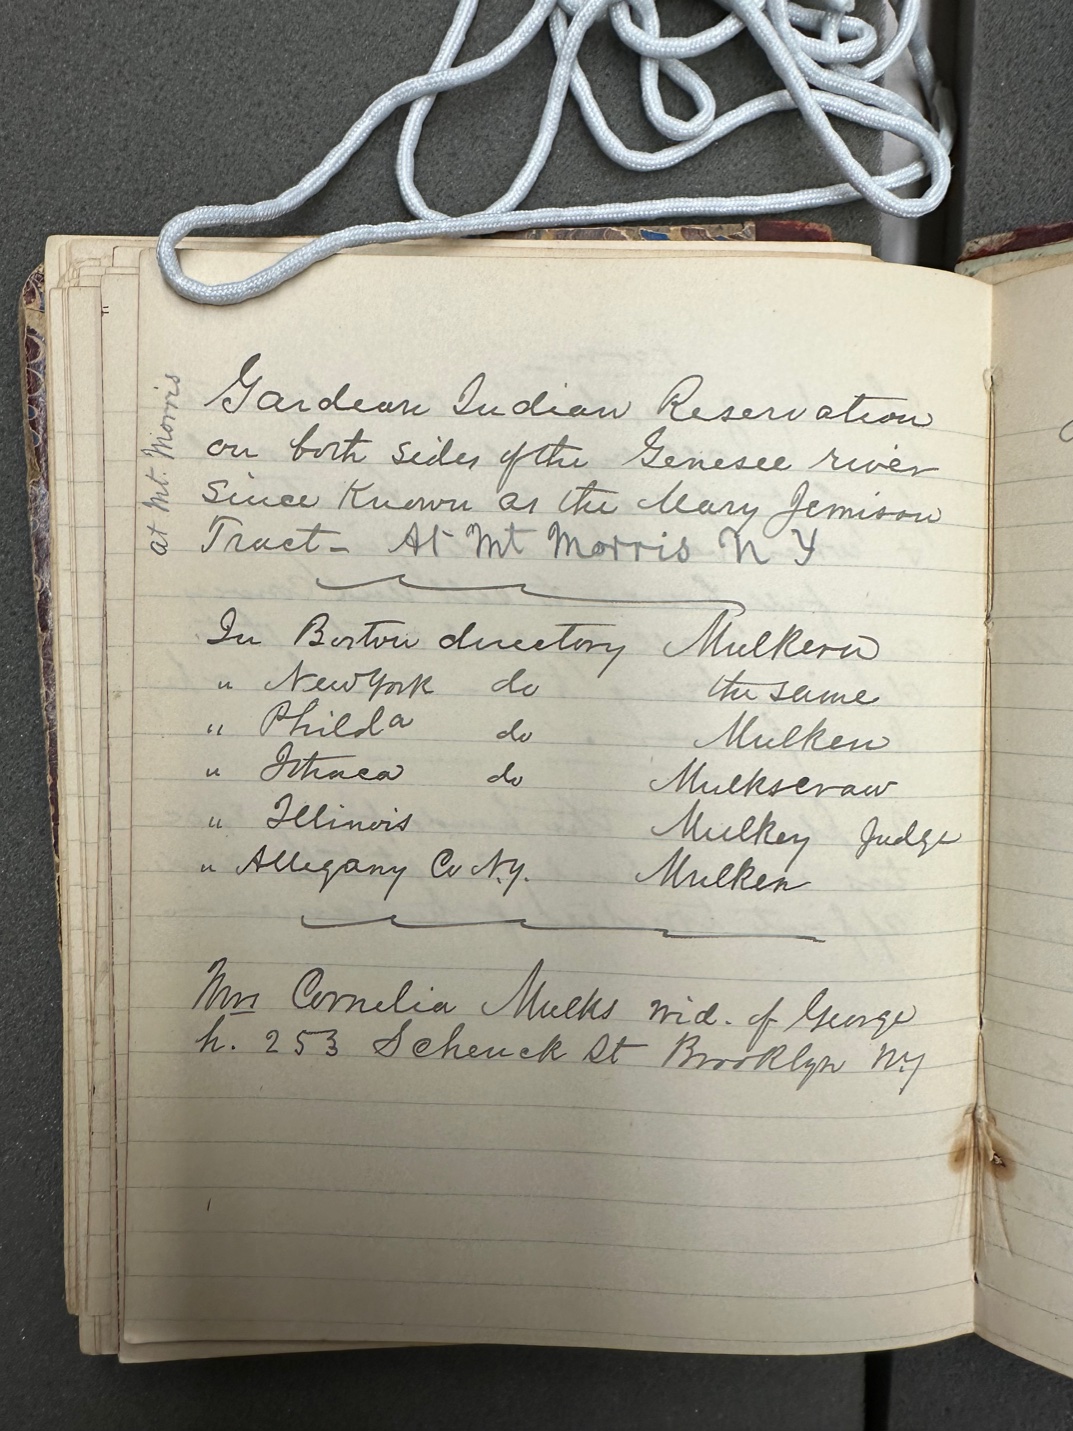 at Mt. Morris
Gardeau Indian Reservation
on both sides of the Genesee river
since Known as the Mary Jemison
Tract - At Mt Morris N Y
In Boston directory Mulkern
" New York do the same
" Philda do Mulken
" Ithaca do Mulkscraw
" Illinois Mulkey Judge
" Allegany Co N.Y. Mulken
Mrs Cornelia Mulks wid. of George
h. 253 Schenck St Brooklyn NY